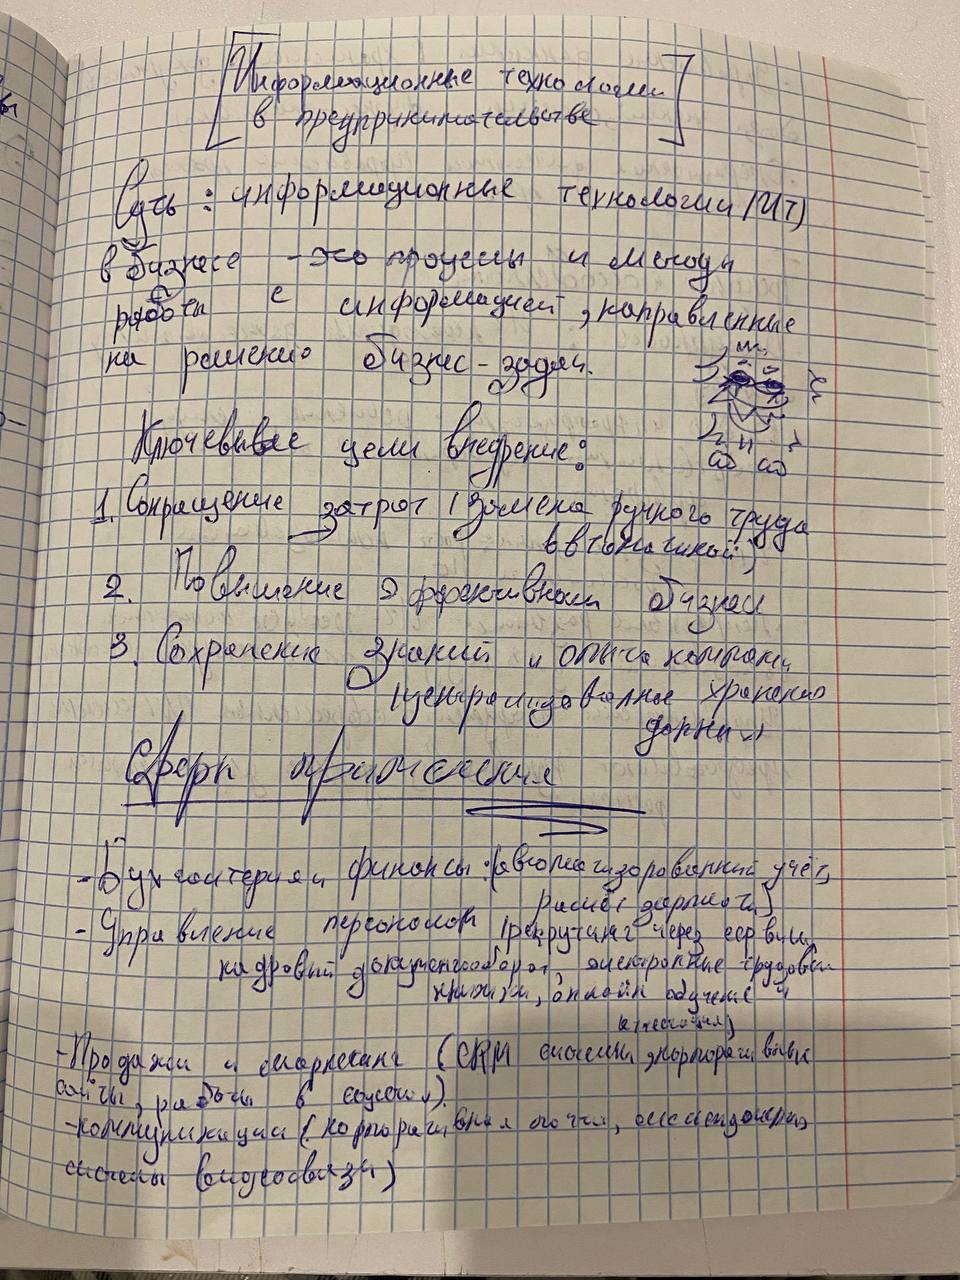 Информационные технологии
в предпринимательстве
Суть: информационные технологии (ИТ)
в бизнесе - это процессы и методы
работы с информацией, направленные
на решению бизнес-задач.
Ключевые цели внедрение:
1. Сокращение затрат (замена ручного труда
автоматикой)
2. Повышение эффективности бизнеса
3. Сохранение знаний и опыта компании
(централизованное хранение
данных)
Сферы применения
- Бухгалтерия и финансы: (автоматизированный учёт,
расчёт зарплаты)
- Управление персоналом (рекрутинг через сервисы,
кадровый документооборот, электронные трудовые
книжки, онлайн обучение и
аттестация)
- Продажи и маркетинг (CRM системы, корпоративные
сайты, работы в соцсетях).
- коммуникации (корпоративная почта, мессенджеры,
системы видеосвязи)